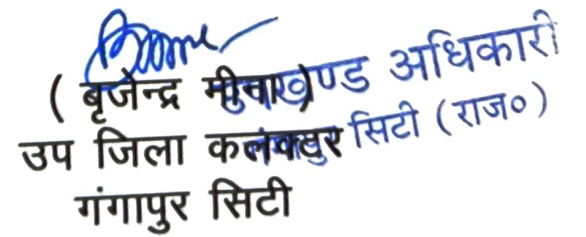 ( बृजेन्द्र मीना)
उप जिला कलक्टर
गंगापुर सिटी
उपखण्ड अधिकारी
गंगापुर सिटी (राज०)